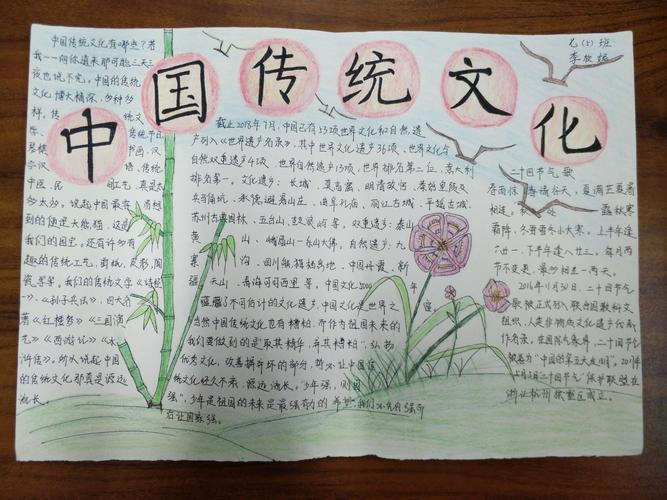 中国传统文化
七(2)班
中国传统文化有哪些?若
我一一向你道来那可能三天三
夜也说不完。中国的传统
文化博大精深,多种多
样。传统文
传统节日
书画、汉
传统
中医、民间工艺,真是太
多太多。说起中国最
到的便是大熊猫,这是
我们的国宝。还有许多有
趣的传统工艺,剪纸、皮影、陶
瓷等等,我们的传统文学《诗经
》、《孙子兵法》、四大名
著《红楼梦》《三国演
义》《西游记》《水
浒传》。所以说起中国
的传统文化那真是源远
流长。
截止2018年7月,中国已有53项世界文化和自然遗
产列入《世界遗产名录》,其中世界文化遗产36项、世界文化与
自然双重遗产4项、世界自然遗产13项,世界排名第二位,意大利
排名第一。文化遗产:长城、莫高窟、明清故宫、秦始皇陵及
兵马俑坑、承德避暑山庄、曲阜孔府、丽江古城、平遥古城、
苏州古典园林、五台山、鼓浪屿等,双重遗产:泰山
黄山、峨眉山—乐山大佛,自然遗产:九
寨沟、四川熊猫栖息地、中国丹霞、新
疆天山、青海可可西里等。中国文化2000
了不可估计的文化遗产,中国文化是世界之
当然中国传统文化也有糟粕,而作为祖国未来的
我们要做到的是“取其精华,弃其糟粕”,弘扬
优秀文化,改善掉坏的部分,
统文化经久不衰,源远流长。“少年强,则国
强”,少年是祖国的未来是最强有力的希望,我们
后让国家强。
二十四节气歌
春雨惊春清谷天,夏满芒夏暑
相连。秋处露秋寒
霜降,冬雪雪冬小大寒。上半年逢
六廿一,下半年逢八廿三。每月两
节不变更,最多相差一两天。
2016年11月30日,二十四节气
被正式列入联合国教科文
组织,人类非物质文化遗产代表
作名录。在国际气象界,二十四节气
被誉为“中国的第五大发明”。2017年
5月5日二十四节气保护联盟在
浙江杭州拱墅区成立。